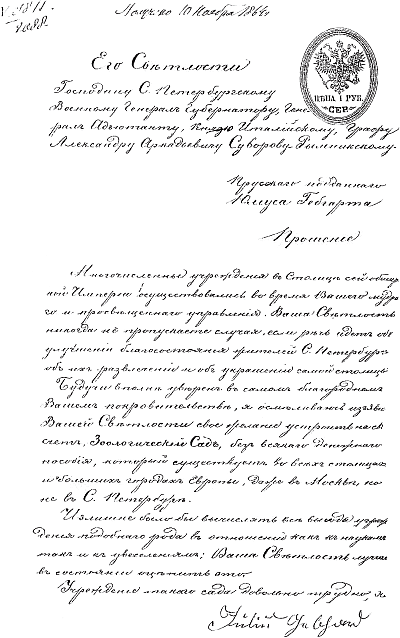 Получено 10 Ноября 1864
Его Свѣтлости
Господину С. Петербургскому
Военному Генералъ Губернатору, Гене
ралъ Адъютанту, Князю Италійскому, Графу
Александру Аркадьевичу Суворову-Рымникскому.
ЦѢНА 1 РУБ.
СЕР.
Прусскаго подданнаго
Юлиуса Гебгарта
Прошеніе
Многочисленныя учрежденія въ Столицѣ сей обшир
ной Имперіи осуществовались во время Вашего мудра
го и просвѣщеннаго управленія. Ваша Свѣтлость
никогда не пропускаете случая, если рѣчь идетъ объ
улучшеніи благосостоянія жителей С. Петербурга
объ ихъ развлеченіи и объ украшеніи самой столицы
Будучи вполнѣ увѣренъ въ самомъ благородномъ
Вашемъ покровительствѣ, я осмѣливаюсь изъяв
Вашей Свѣтлости свое желаніе устроить на св
счетъ, Зоологическій Садъ, безъ всякаго денежнаго
пособія, который существуетъ во всѣхъ столицахъ
и большихъ городахъ Европы, даже въ Москвѣ, но
не въ С. Петербургѣ.
Излишне было бы вычислять всѣ выгоды учреж
денія подобнаго рода въ отношеніи какъ къ наукамъ
такъ и къ увеселеніямъ; Ваша Свѣтлость лучше
въ состояніи оцѣнить это.
Учрежденіе такаго сада довольно трудно, я
Julius Gebhard